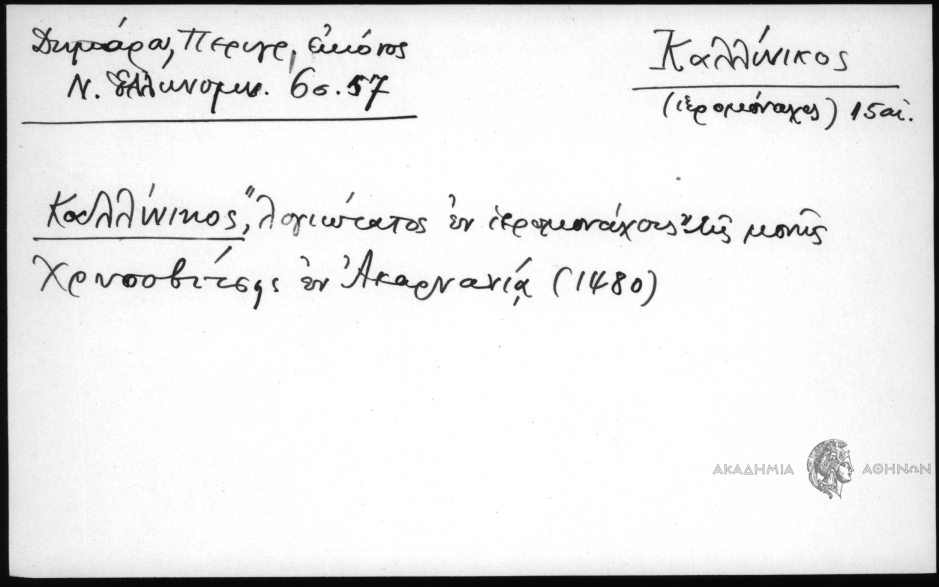 Περιγρ, εἰκόνος
Ν. Ἑλληνομν. 6 σ. 57
Καλλίνικος
(ἱερομόναχος) 15 αἰ.
Καλλίνικος, "λογιώτατος ἐν ἱερομονάχοις" τῆς μονῆς
Χρυσοβίτσης ἐν Ἀκαρνανίᾳ (1480)
ΑΚΑΔΗΜΙΑ ΑΘΗΝΩΝ